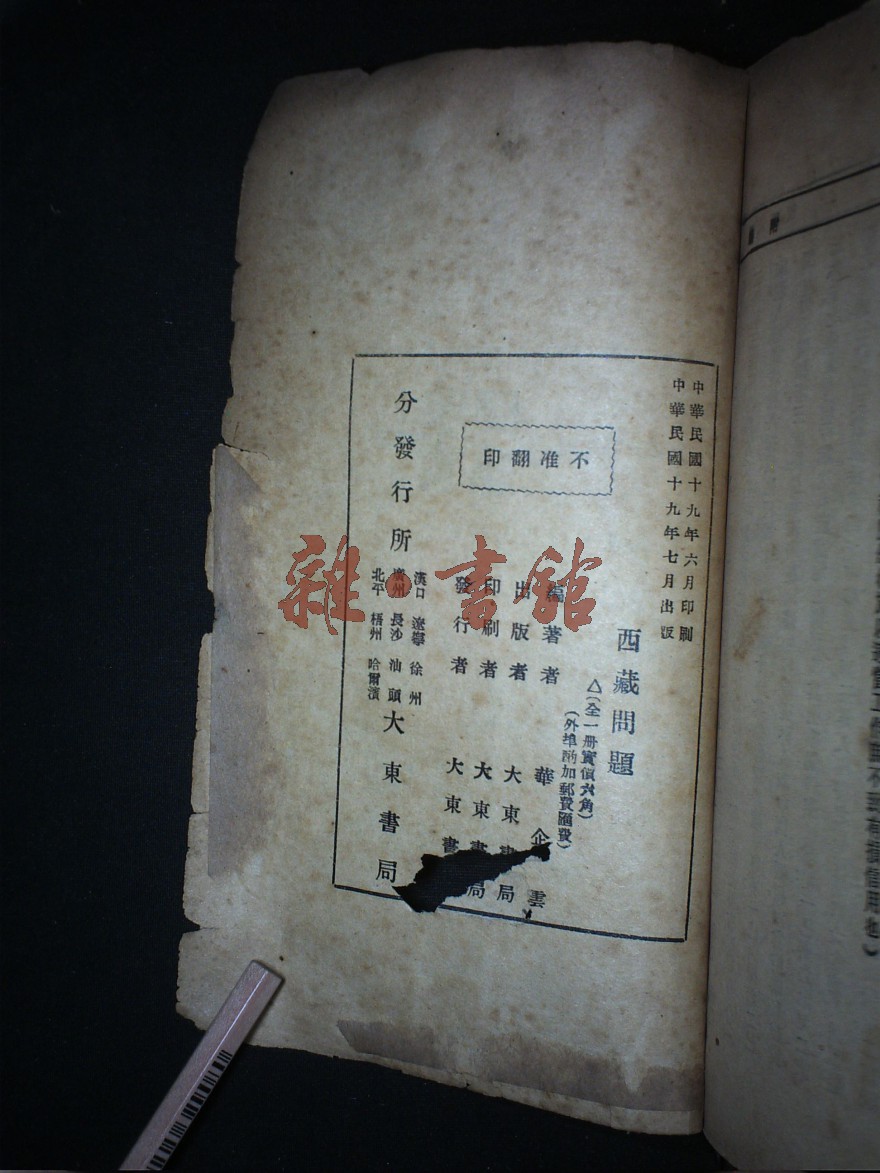 中華民國十九年六月印刷
中華民國十九年七月出版
西藏問題
△(全一册實價六角)
(外埠酌加郵費匯費)
不准翻印
編著者 華企雲
出版者 大東書局
印刷者 大東書局
發行者 大東書
分發行所
漢口 遼寧 徐州
廣州 長沙 汕頭
北平 梧州 哈爾濱
大東書局
附
雜·書館